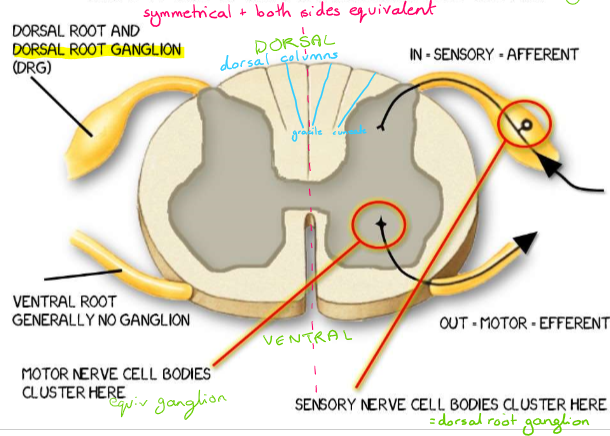 symmetrical + both sides equivalent
DORSAL ROOT AND
DORSAL ROOT GANGLION
(DRG)
DORSAL
dorsal columns
IN = SENSORY = AFFERENT
gracile cuneate
VENTRAL ROOT
GENERALLY NO GANGLION
VENTRAL
OUT = MOTOR = EFFERENT
MOTOR NERVE CELL BODIES
CLUSTER HERE
equiv ganglion
SENSORY NERVE CELL BODIES CLUSTER HERE
= dorsal root ganglion